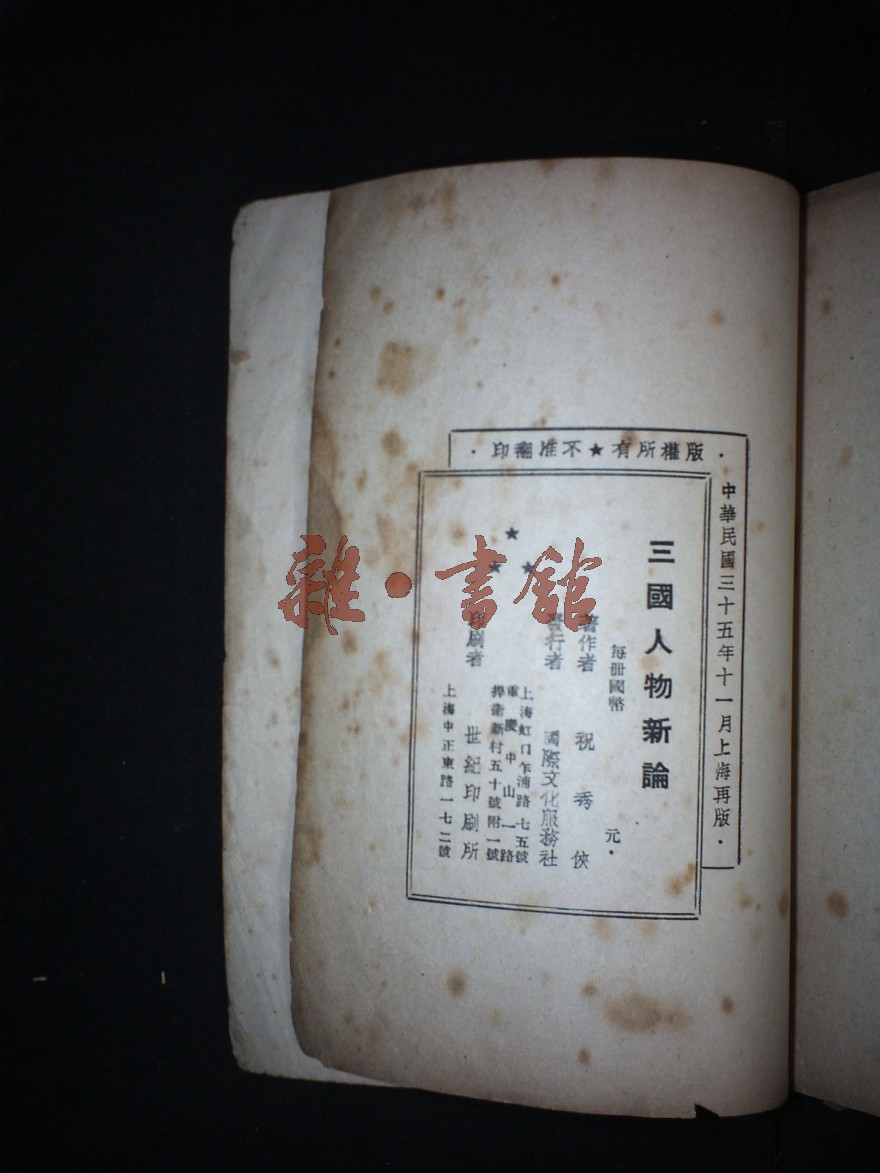 版權所有★不准翻印
中華民國三十五年十一月上海再版
三國人物新論
每冊國幣 元
著作者 祝秀俠
發行者 國際文化服務社
上海虹口乍浦路七五號
重慶中山一路
捍衛新村五十號附一號
印刷者 世紀印刷所
上海中正東路一七二號
雜·書館